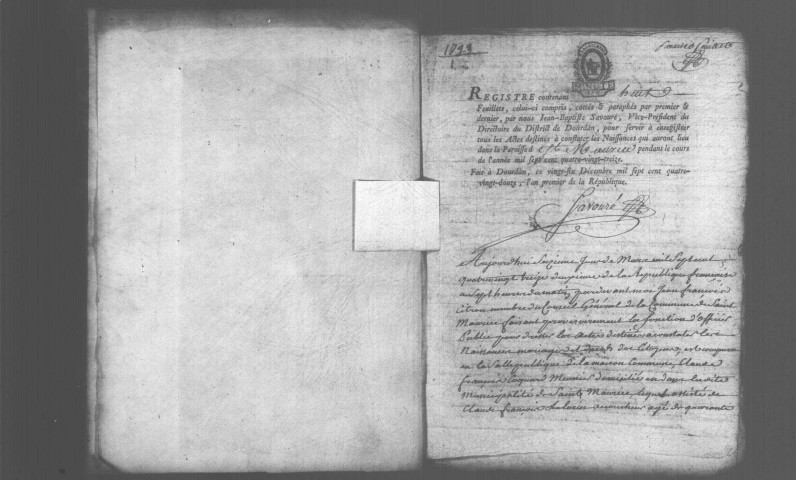 1793
1.
REGISTRE contenant huit
Feuillets, celui-ci compris, cottés & paraphés par premier &
dernier, par nous Jean-Baptiste Savouré, Vice-Président du
Directoire du District de Dourdan, pour servir à enregistrer
tous les Actes destinés à constater les Naissances qui auront lieu
dans la Paroisse de St. Maurice pendant le cours
de l'année mil sept cent quatre-vingt-treize.
Fait à Dourdan, ce vingt-six Décembre mil sept cent quatre-
vingt-douze, l'an premier de la République.
Savouré
Aujourdhui Sixieme Jour de Mars mil Sept cent
quatrevingt treize deuxieme de la Republique française
a Sept heures du matin, pardevant moi Jean françois
membre du Conseil Général de la Commune de Saint
Maurice faisant provisoirement la fonction d'officier
Public pour dresser les actes destinés a constater les
Naissances mariages et decés des Citoyens, est comparu
en la Salle publique de la maison Commune, Claude
françois Meunier domicilié en dans la dite
Municipalité de Saint Maurice, lequel assisté de
Claude françois agé de quarante